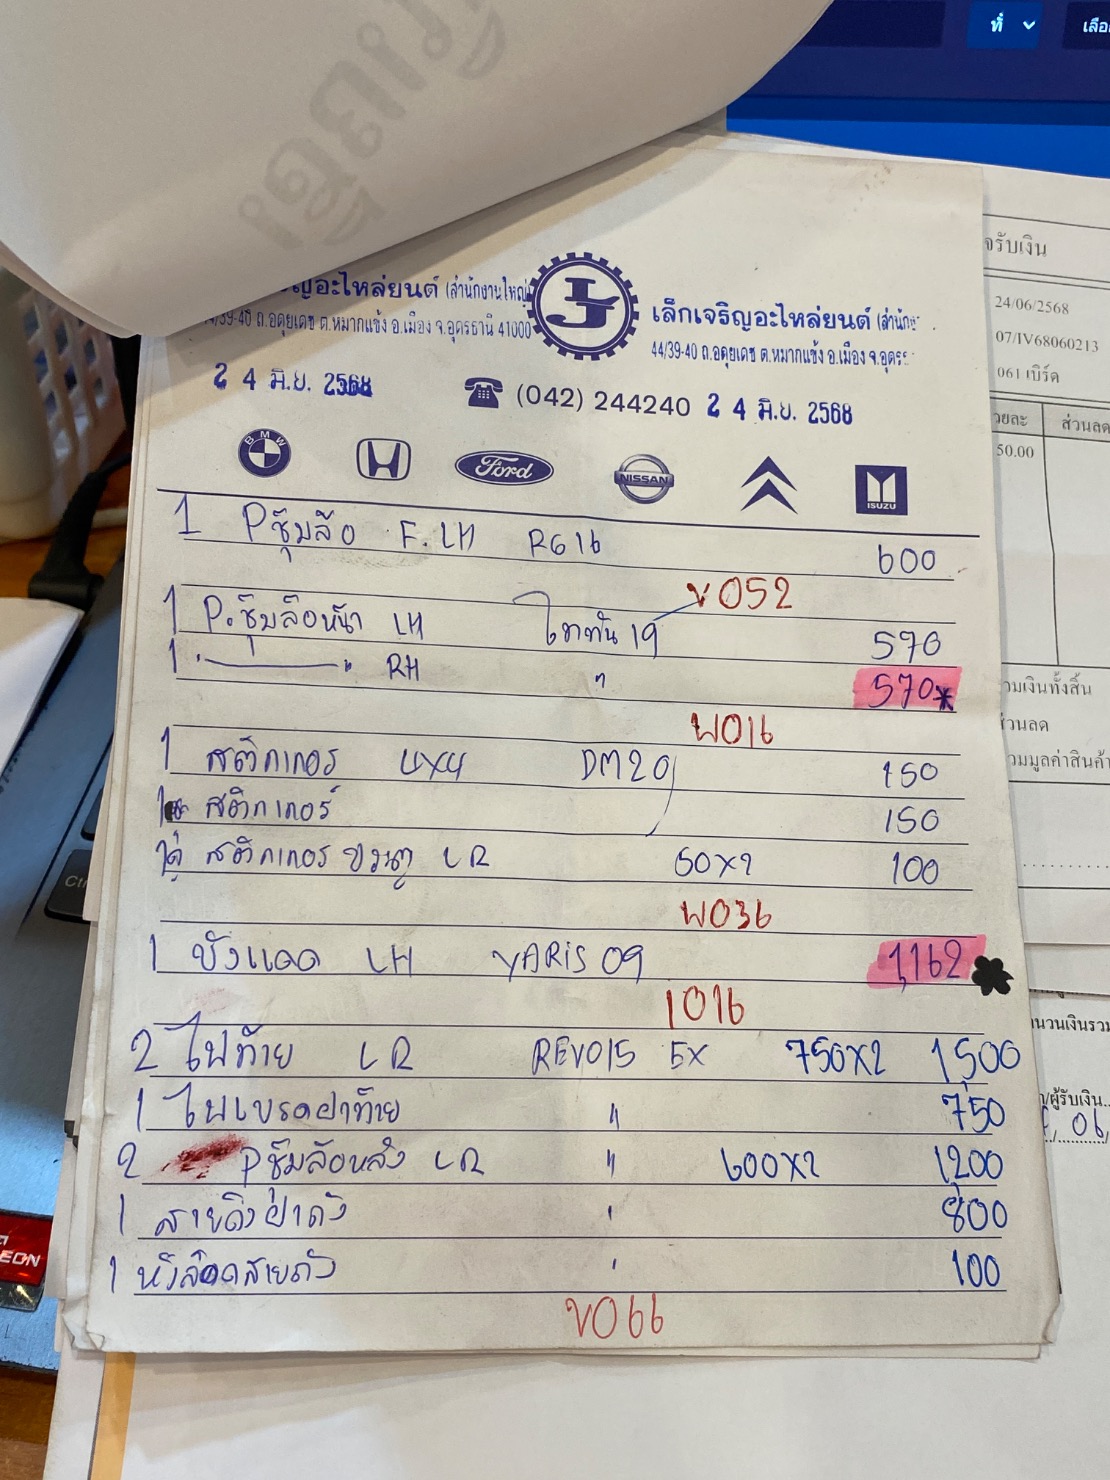 ทั่ เลือ
จรับเงิน
24/06/2568
07/IV68060213
061 เบิร์ด
ส่วนลด
50.00
เจริญอะไหล่ยนต์ (สำนักงานใหญ่)
44/39-40 ถ.อดุยเดช ต.หมากแข้ง อ.เมือง จ.อุดรธานี 41000
เล็กเจริญอะไหล่ยนต์
44/39-40 ถ.อดุยเดช ต.หมากแข้ง อ.เมือง จ.อุดร
2 4 มิ.ย. 2568 (042) 244240 2 4 มิ.ย. 2568
BMW Ford NISSAN ISUZU
1 Pซุ้มล้อ F. LH RG16 600
V052
1 P.ซุ้มล้อหน้า LH ไททัน 19 570
1 " RH " 570*
W016
1 สติกเกอร 4X4 DM20 150
1 สติกเกอร์ 150
สติกเกอร LR 50x2 100
W036
1 บังแดด LH YARIS 09 1,162
1016
2 ไฟท้าย LR REVO15 EX 750x2 1,500
1 ไฟเบรคฝาท้าย " 750
2 Pซุ้มล้อหลัง LR " 600x2 1,200
1 สายดึงฝาถัง ' 800
1 สายถัง ' 100
V066
รวมเงินทั้งสิ้น
ส่วนลด
รวมมูลค่าสินค้า
/ผู้รับเงิน
06
Ctr